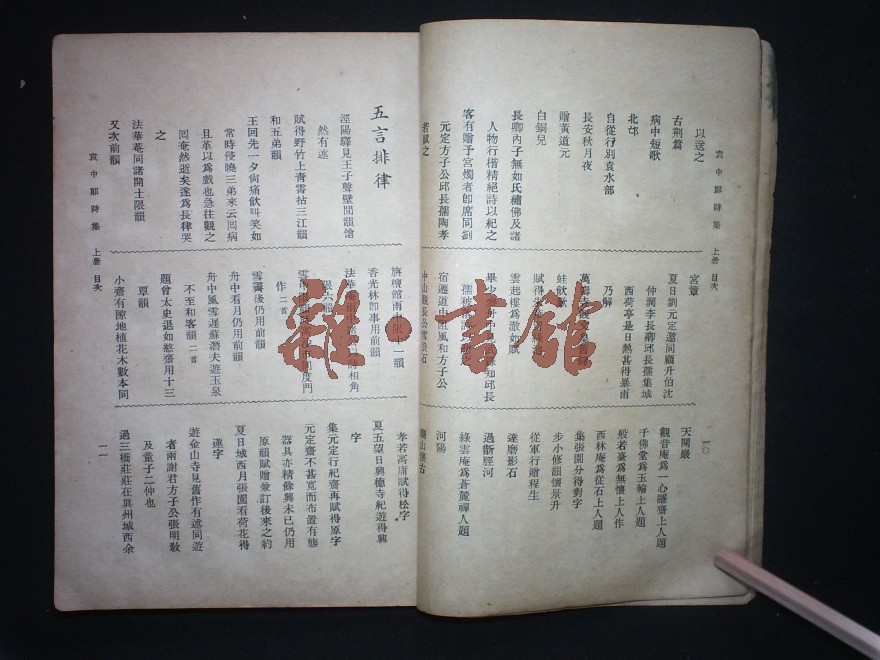 袁中郎詩集 上册 目次
以送之
古荆篇
病中短歌
北邙
自從行別袁水部
長安秋月夜
贈黃道元
白銅兒
長卿內子無如氏繡佛及諸
人物行楷精絕詩以紀之
客有贈予宮燭者卽席同劉
元定方子公邱長孺陶孝
若賦之
宮簟
夏日劉元定邀同顧升伯沈
仲潤李長卿邱長孺集城
西荷亭是日熱甚得暴雨
乃解
蛙
賦得
雲起樓為
畢少
孺被
宿遷道中阻風和方子公
天開巖
觀音庵為一心禪齋上人題
千佛堂為玉輪上人題
般若臺為無懷上人作
西林庵為從石上人題
集張園分得對字
步小修韻懷景升
從軍行贈程生
達磨影石
過斷脛河
綠雲庵為蒼麓禪人題
河陽
一〇
五言排律
涇陽驛見王子聲壁間韻愴
然有述
賦得野竹上靑霄拈三江韻
和五弟韻
王回先一夕尙痛飲叫笑如
常時侵曉三弟來云回病
且革以為戲也急往觀之
回奄然逝矣遂為長律哭
之
法華菴同諸開士限韻
又次前韻
袁中郎詩集 上册 目次
香光林卽事用前韻
作二首
雪霽後仍用前韻
舟中看月仍用前韻
舟中風雪遲蘇潛夫遊玉泉
不至和客韻二首
題曾太史退如憨齋用十三
覃韻
小齋有隙地植花木數本同
孝若寓庸賦得松字
夏五望日興德寺紀遊得興
字
集元定行紀齋再賦得原字
元定齋不甚寬而布置有態
器具亦精餘興未已仍用
原韻賦贈兼訂後來之約
夏日城西月張園看荷花得
蓮字
遊金山寺見舊作有述同遊
者兩謝君方子公張明敎
及童子二仲也
過三橋莊莊在眞州城西余
一一
雜·書館